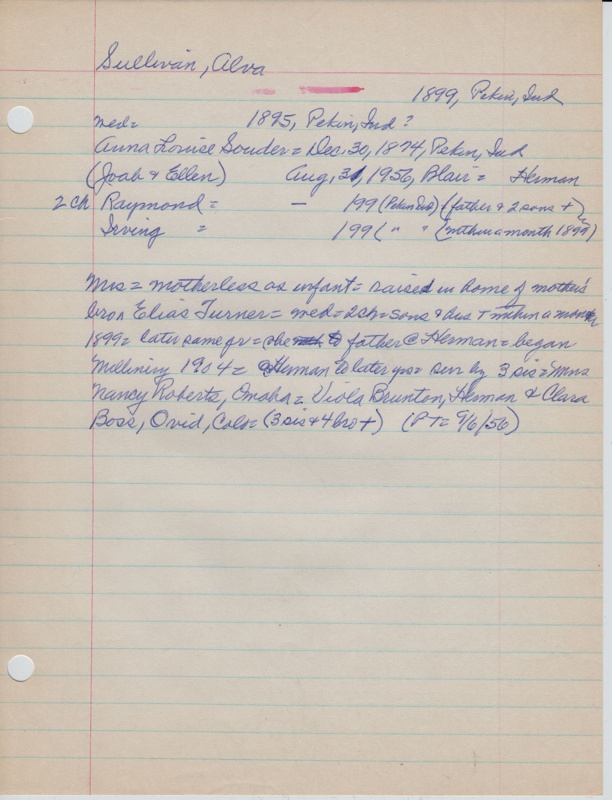 Sullivan, Alva
1899, Pekin, Ind
med= 1895, Pekin, Ind ?
Anna Louise Souder = Dec. 30, 1874, Pekin, Ind
(Joab & Ellen) Aug, 31, 1956, Blair = Herman
2 ch Raymond = - 199 (Pekin Ind) (father & 2 sons +
Irving = 199 ( " " (within a month 1899)
Mrs = motherless as infant = raised in home of mother's
bro Elias Turner = med = 2 ch = sons & hus + within a month
1899 = later same yr = she to father @ Herman = began
Millinery 1904 = Herman to later yrs = sur by 3 sis = Mmes
Nancy Roberts, Omaha = Viola Brunton, Herman & Clara
Boss, Ovid, Colo = (3 sis & 4 bro +) (PT = 9/6/56)